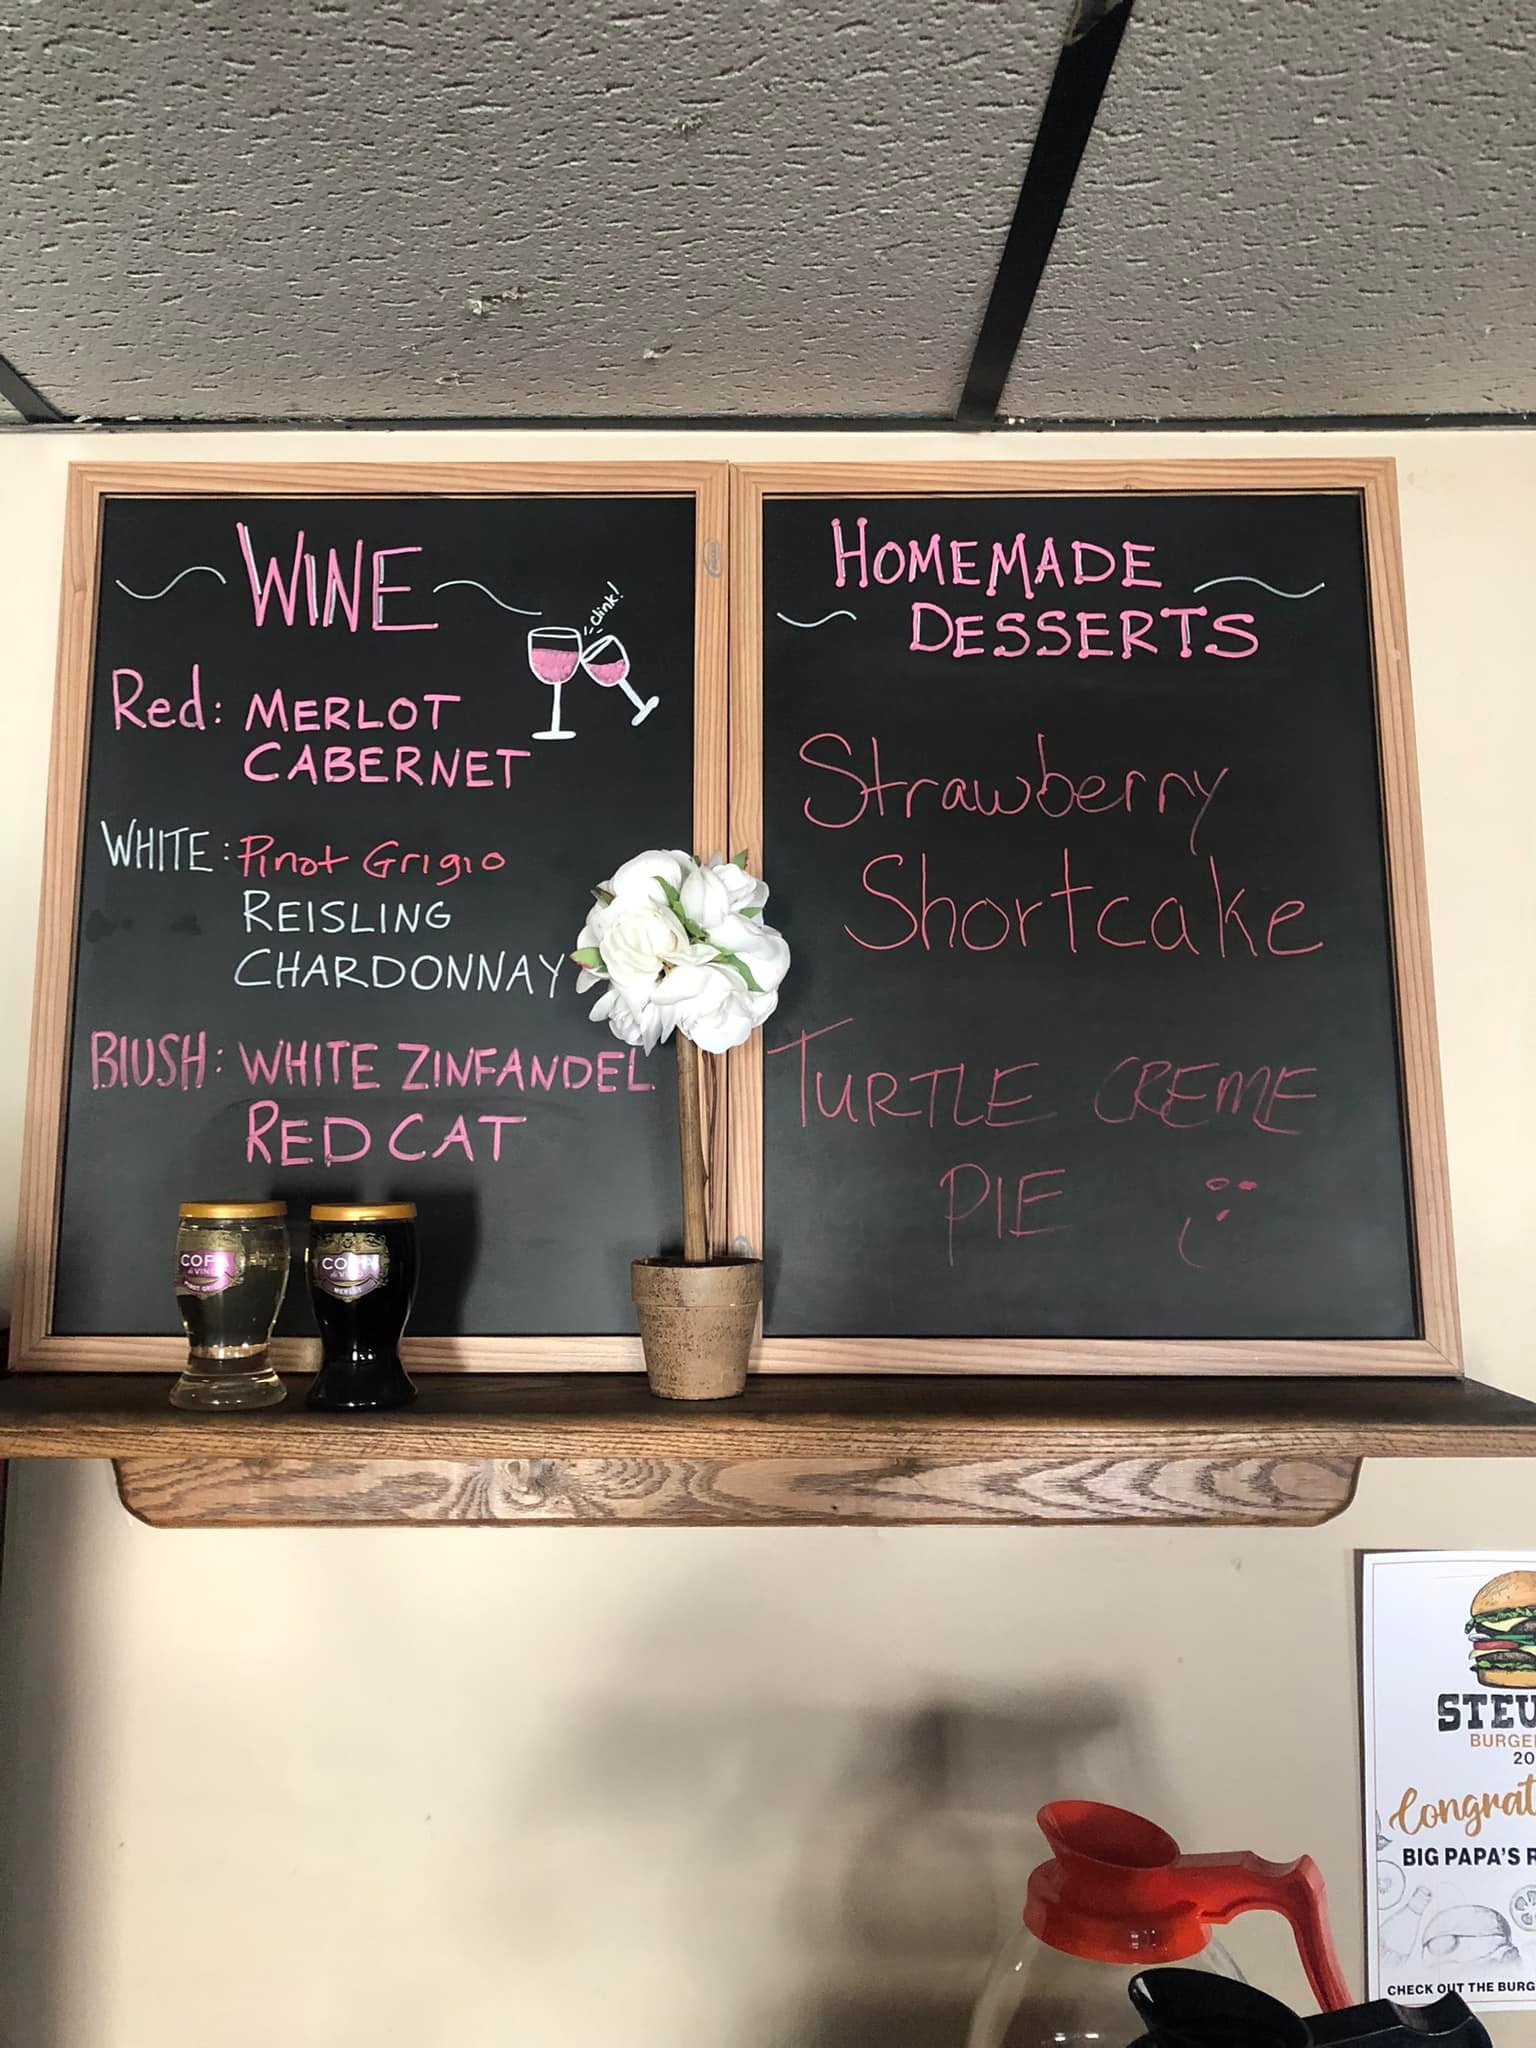 WINE
Clink!
Red: MERLOT
CABERNET
WHITE: Pinot Grigio
REISLING
CHARDONNAY
BlUSH: WHITE ZINFANDEL
RED CAT
HOMEMADE
DESSERTS
Strawberry
Shortcake
TURTLE CREME
PIE
COPA
di VINO
PINOT GRIGIO
COPA
di VINO
MERLOT
STEU
BURGE
20
Congrat
BIG PAPA'S R
CHECK OUT THE BURG